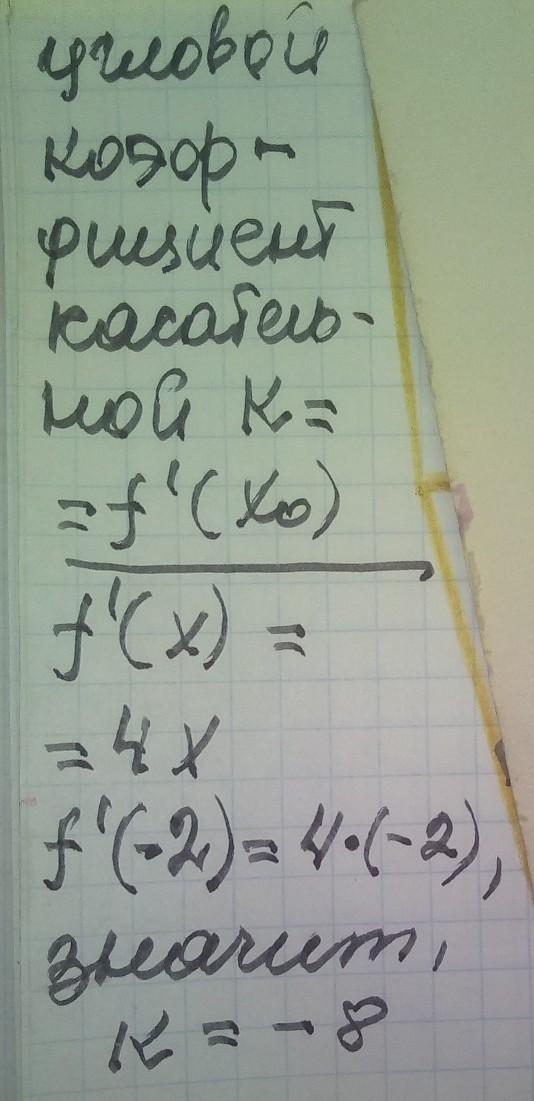 угловой
коэф-
фициент
касатель-
ной K=
=f'(x₀)
f'(x) =
=4x
f'(-2)=4·(-2),
значит,
K = -8